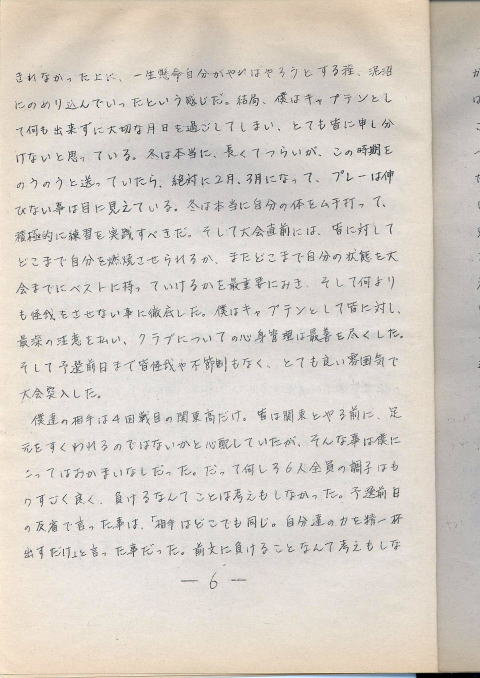 きれなかった上に、一生懸命自分がやればやろうとする程、泥沼
にのめり込んでいったという感じだ。結局、僕はキャプテンとし
て何も出来ずに大切な月日を過ごしてしまい、とても皆に申し分
けないと思っている。冬は本当に、長くてつらいが、この時期を
のうのうと送っていたら、絶対に2月、3月になって、プレーは伸
びない事は目に見えている。冬は本当に自分の体をムチ打って、
積極的に練習を実践すべきだ。そして大会直前には、皆に対して
どこまで自分を燃焼させられるか、またどこまで自分の状態を大
会までにベストに持っていけるかを最重要におき、そして何より
も怪我をさせない事に徹底した。僕はキャプテンとして皆に対し、
最深の注意を払い、クラブについての心身管理は最善を尽くした。
そして予選前日まで皆怪我や不節制もなく、とても良い雰囲気で
大会突入した。
僕達の相手は4回戦目の関東高だけ。皆は関東とやる前に、足
元をすくわれるのではないかと心配していたが、そんな事は僕に
とってはおかまいなしだった。だって何しろ6人全員の調子はも
のすごく良く、負けるなんてことは考えもしなかった。予選前日
の反省で言った事は、「相手はどこでも同じ。自分達の力を精一杯
出すだけ」と言った事だった。前文に負けることなんて考えもしな
— 6 —